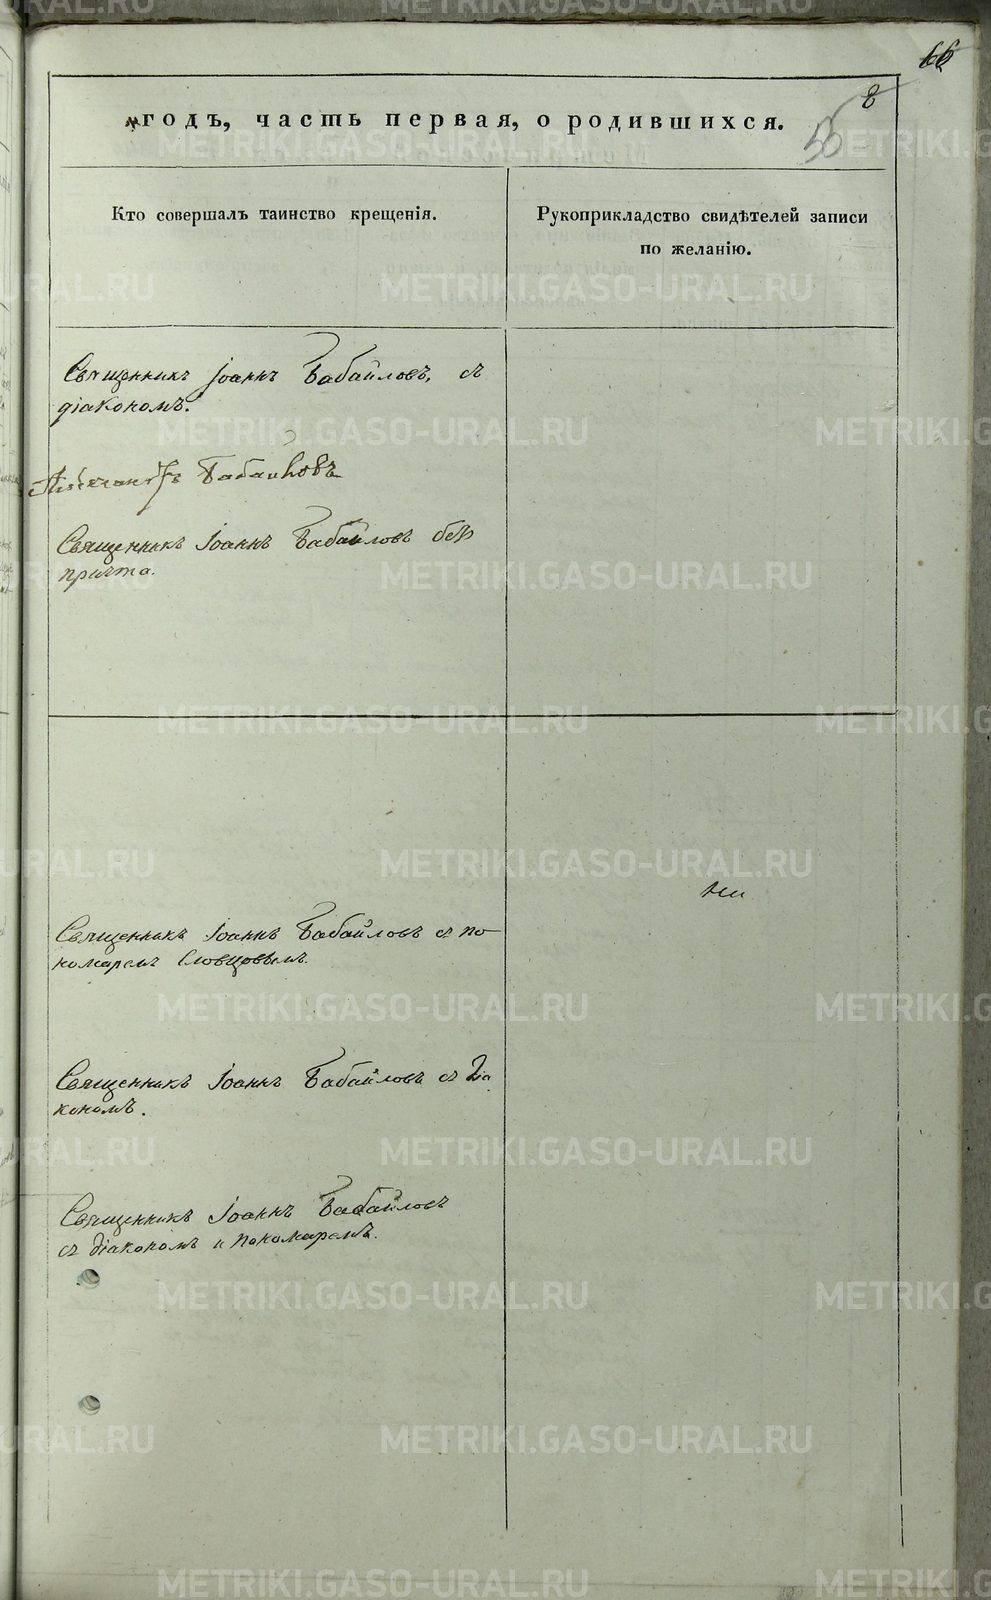 66
8
55
годъ, часть первая, о родившихся.
Кто совершалъ таинство крещенія.
Рукоприкладство свидѣтелей записи
по желанію.
Священникъ Іоаннъ Бабайловъ, съ
діакономъ.
Бабайловъ
Священникъ Іоаннъ Бабайловъ безъ
причта.
Священникъ Іоаннъ Бабайловъ съ по-
номаремъ Словцовымъ.
Священникъ Іоаннъ Бабайловъ съ Діа
кономъ.
Священникъ Іоаннъ Бабайловъ
съ діакономъ и пономаремъ.
METRIKI.GASO-URAL.RU